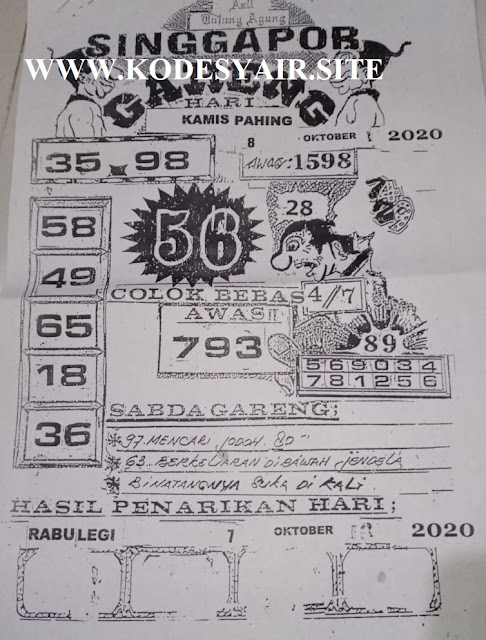 Asli
Tulung Agung
SINGGAPOR
WWW.KODESYAIR.SITE
GARENG
HARI
KAMIS PAHING
8 OKTOBER 2020
35 98
AWAS: 1598
58
49
65
18
36
28
COLOK BEBAS
4//7
AWAS!!
793
89
569034
781256
SABDA GARENG;
*97. MENCARI JODOH. 80"
*63. BERKELIARAN DIBAWAH JENDELA
*BINATANGNYA SUKA DI KALI
HASIL PENARIKAN HARI;
RABU LEGI 7 OKTOBER 2020